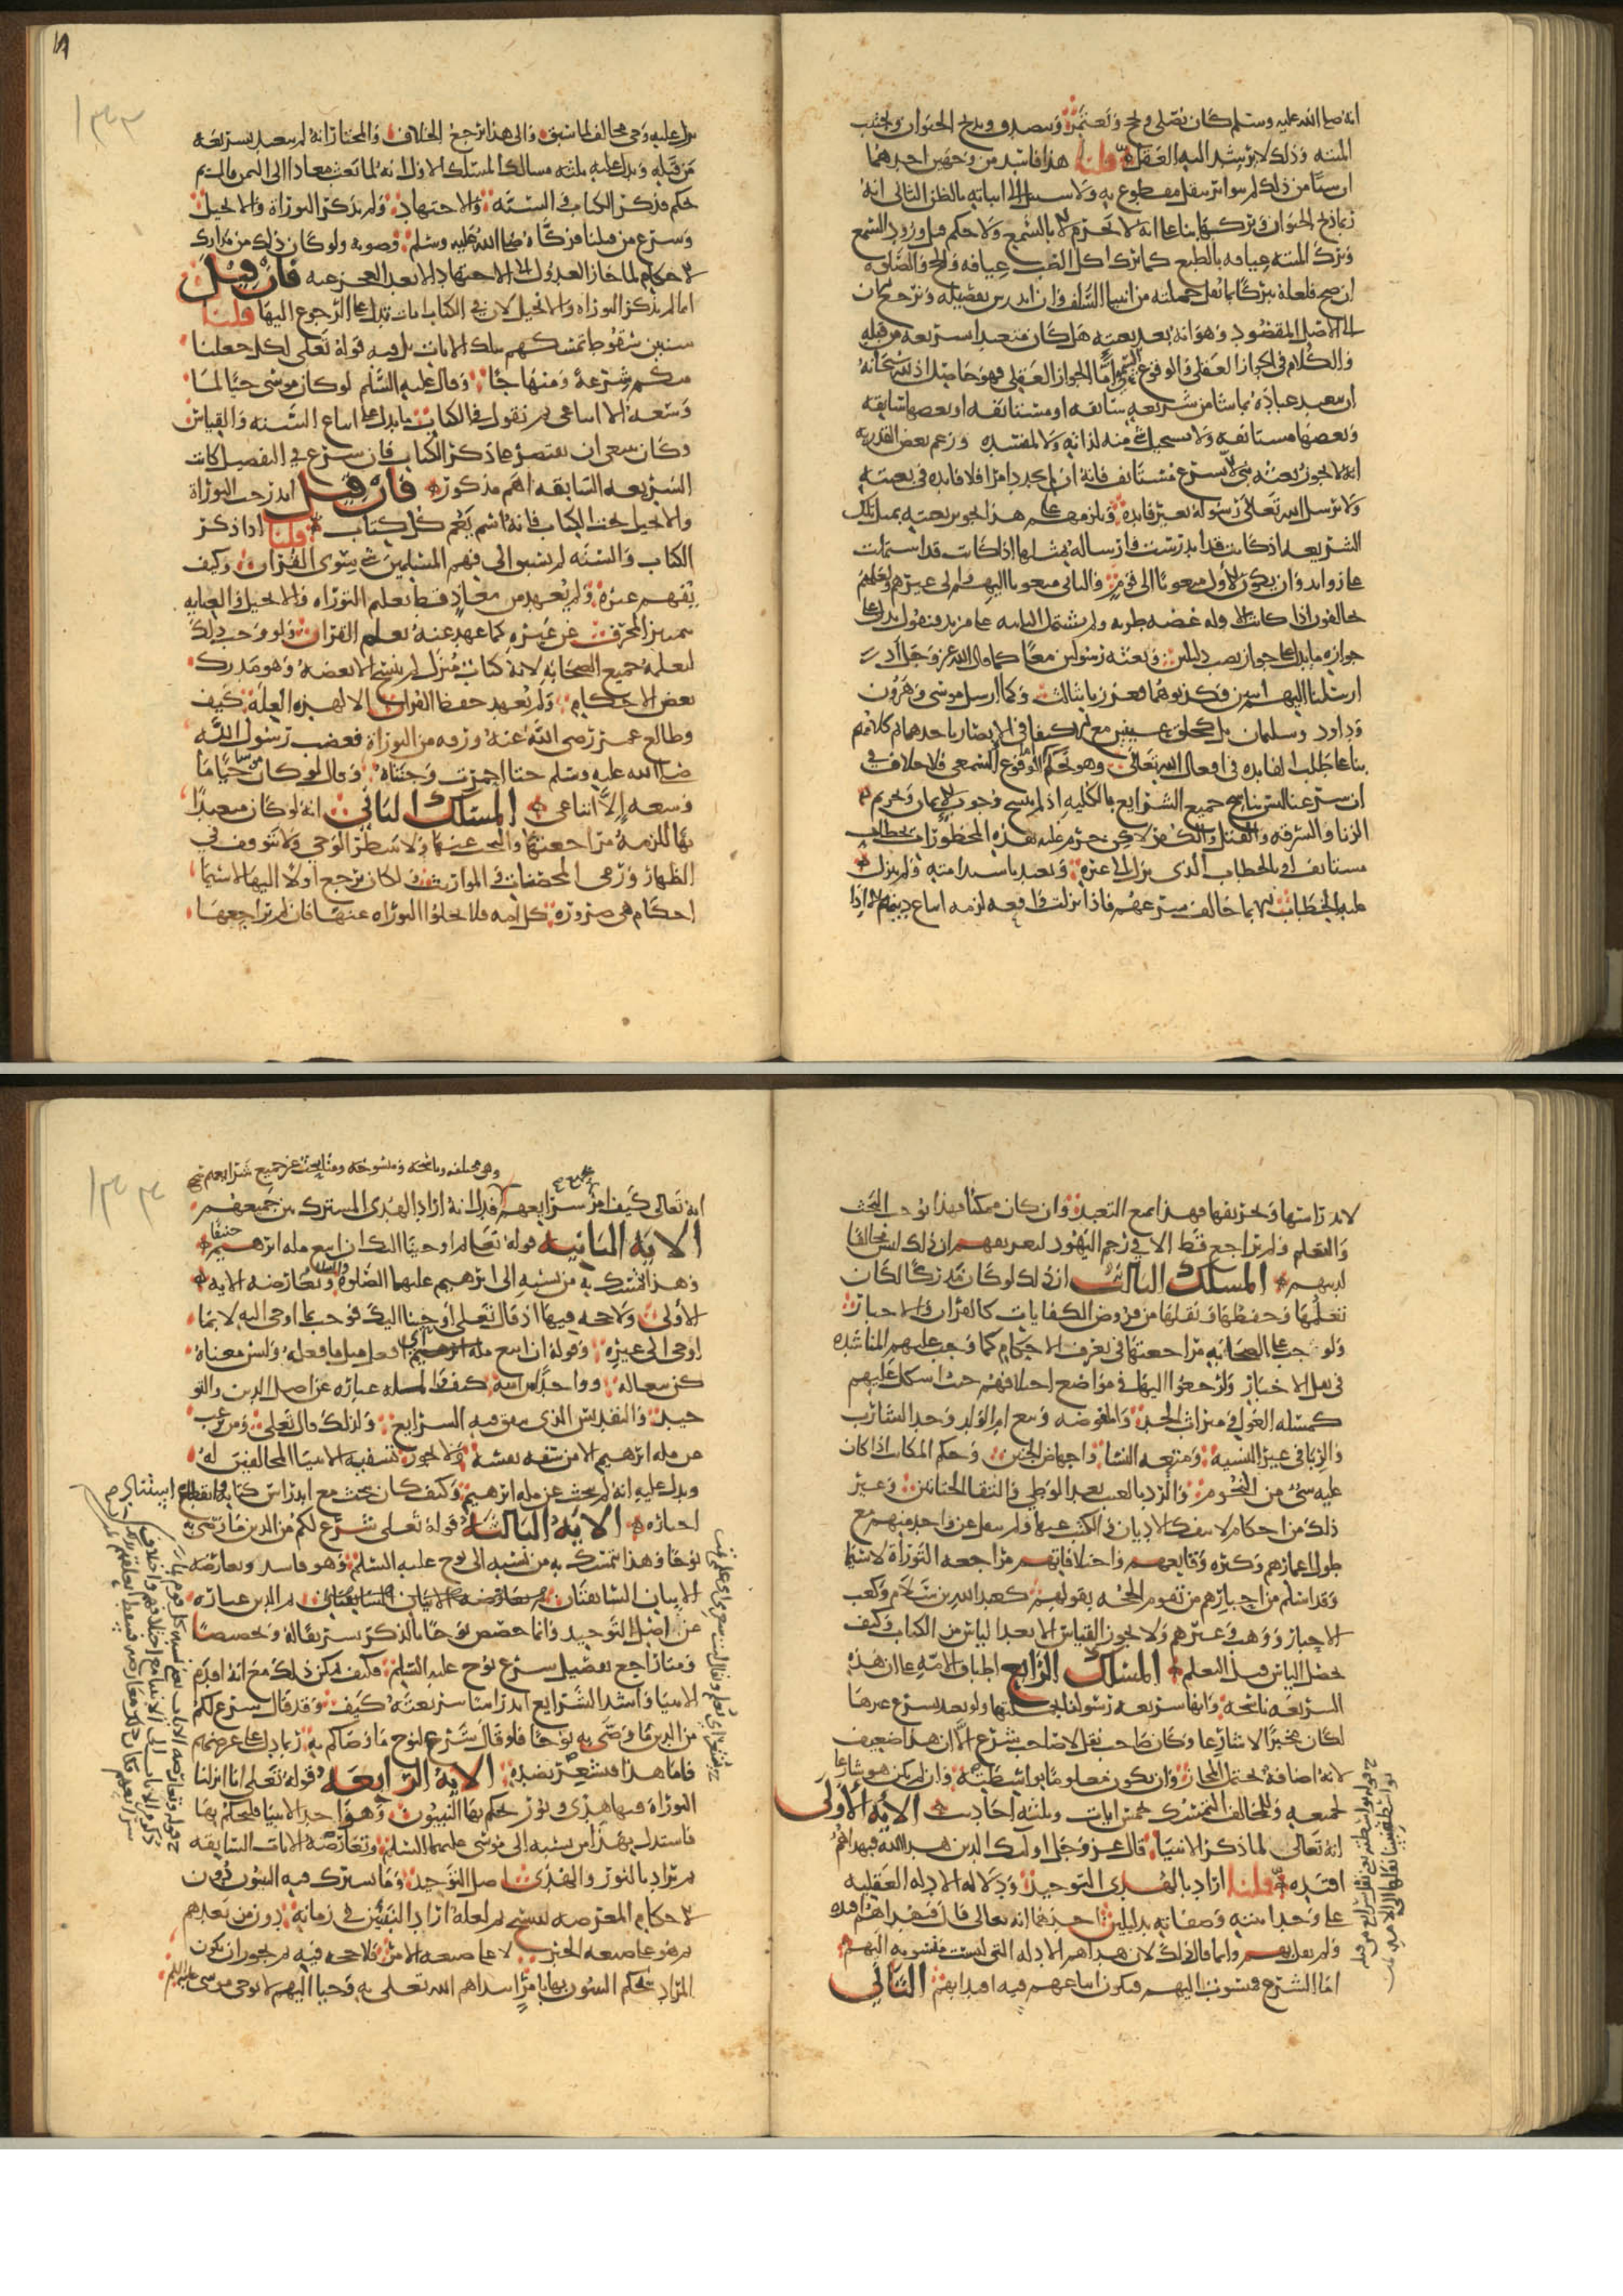 انه صلى الله عليه وسلم كان يصلي ويحج ويعتمر ويتصدق ويذبح الحيوان ويجتنب
الميتة وذلك لا يرشد اليه العقل قلنا هذا فاسد من وجهين احدهما
ان شيئا من ذلك لم يتواتر بنقل مقطوع به ولا سبيل الى اثباته بالظن الثاني انه
ربما ذبح الحيوان بناء على انه لا تحريم الا بالسمع ولا حكم قبل ورود السمع
وترك الميتة عيافة بالطبع كما ترك اكل الضب عيافة والحج والصلوة
ان صح فلعله تبركا بما نقل جملته من انبيا السلف وان اندرس تفصيله ونرجع الان
الى الاصل المقصود وهو انه بعد بعثته هل كان متعبدا بشريعة من قبله
والكلام في الجواز العقلي والوقوع السمعي اما الجواز العقلي فهو حاصل اذ لله سبحانه
ان يتعبد عباده بما شا من شريعة سابقة او مستانفة او بعضها سابقة
وبعضها مستانفة ولا يستحيل شي منه لذاته ولا لمفسدة وزعم بعض القدرية
انه لا يجوز بعثة نبي الا بشرع مستانف فانه ان لم يجدد امرا فلا فايدة في بعثته
ولا يرسل الله تعالى رسوله بغير فايدة ويلزمهم على هذا تجويز بعثته بمثل تلك
الشريعة اذا كانت قد اندرست وارساله بمثلها اذا كانت قد اشتملت
على زوايد وان يكون الاول مبعوثا الى قوم والثاني مبعوثا اليهم والى غيرهم ولعلهم
يخالفون اذا كانت الاولى غضة طرية ولم تشتمل الثانية على مزيد فنقول يدل على
جوازه ما يدل على جواز نصب دليلين وبعثة رسولين معا كما قال الله عز وجل اذ
ارسلنا اليهم اثنين فكذبوهما فعززنا بثالث وكما ارسل موسى وهرون
وداود وسليمان بل كخلق عينين مع الاكتفا في الابصار باحدهما ثم كلامهم
بنا على طلب الفايدة في افعال الله تعالى وهو تحكم اما الوقوع السمعي فلا خلاف في
ان شرعنا ليس بناسخ جميع الشرايع بالكلية اذ لم ينسخ وجوب الايمان وتحريم
الزنا والسرقة والقتل والكفر لكن حرم عليه هذه المحظورات بخطاب
مستانف او بالخطاب الذي نزل الى غيره وتعبد باستدامته ولم ينزل
عليه الخطاب الا بما خالف شرعهم فاذا نزلت واقعة لزمه اتباع دينهم الا اذا
نزل عليه وحي مخالف لما سبق والى هذا يرجع الخلاف والمختار انه لم يتعبد بشريعة
من قبله ويدل عليه ثلثة مسالك المسلك الاول انه لما بعث معاذا الى اليمن قال بم
تحكم فذكر الكتاب والسنة والاجتهاد ولم يذكر التوراة والانجيل
وشرع من قبلنا فزكاه صلى الله عليه وسلم وصوبه ولو كان ذلك من مدارك
الاحكام لما جاز العدول الى الاجتهاد الا بعد العجز عنه فان قيل
انما لم يذكر التوراة والانجيل لان في الكتاب ايات تدل على الرجوع اليها قلنا
سنبين سقوط تمسكهم بتلك الايات بل فيه قوله تعلى لكل جعلنا
منكم شرعة ومنهاجا وقال عليه السلم لو كان موسى حيا لما
وسعه الا اتباعي ثم نقول في الكتاب ما يدل على اتباع السنة والقياس
وكان ينبغي ان يقتصر على ذكر الكتاب فان شرع في التفصيل كانت
الشريعة السابقة اهم مذكور فان قيل اندرجت التوراة
والانجيل تحت الكتاب فانه اسم يعم كل كتاب قلنا اذا ذكر
الكتاب والسنة لم يسبق الى فهم المسلمين شي سوى القران وكيف
يفهم غيره ولم يعهد من معاذ قط تعلم التوراة والانجيل والعناية
بتمييز المحرف عن غيره كما عهد عنه تعلم القران ولو وجب ذلك
لتعلمه جميع الصحابة لانه كتاب منزل لم ينسخ الا بعضه وهو مدرك
بعض الاحكام ولم يعهد حفظ القران الا لهذه العلة كيف
وطالع عمر رضي الله عنه ورقة من التوراة فغضب رسول الله
صلى الله عليه وسلم حتى احمرت وجنتاه وقال لو كان موسى حيا ما
وسعه الا اتباعي المسلك الثاني انه لو كان متعبدا
بها للزمه مراجعتها والبحث عنها ولا ينتظر الوحي ولا يتوقف في
الظهار ورمي المحصنات في المواريث ولكان يرجع اولا اليها لا سيما
احكام هي ضرورة كل امة فلا تخلوا التوراة عنها فان لم يراجعها
لاندراسها وتحريفها فهذا يمنع التعبد وان كان ممكنا فهذا يوجب البحث
والتعلم ولم يراجع قط الا في رجم اليهود ليعرفهم ان ذلك ليس مخالفا
لدينهم المسلك الثالث ان ذلك لو كان مدركا لكان
تعلمها وحفظها ونقلها من فروض الكفايات كالقران والاخبار
ولوجب على الصحابة مراجعتها في تعرف الاحكام كما وجب عليهم المناشدة
في نقل الاخبار ولرجعوا اليها في مواضع اختلافهم حيث اشكل عليهم
كمسئلة العول في ميراث الجد والمفوضة وبيع ام الولد وحد الشارب
والربا في غير النسية ومتعة النسا واجهاض الجنين وحكم المكاتب اذا كان
عليه شي من النجوم والرد بالعيب بعد الوطي والتقا الختانين وغير
ذلك من احكام لا تنفك الاديان في الكتب عنها ولم ينقل عن واحد منهم مع
طول اعمارهم وكثرة وقايعهم واختلافاتهم مراجعة التوراة لا سيما
وقد اسلم من احبارهم من تقوم الحجة بقولهم كعبد الله بن سلام وكعب
الاحبار ووهب وغيرهم ولا يجوز القياس الا بعد الياس من الكتاب وكيف
يحصل الياس قبل التعلم المسلك الرابع اطباق الامة على ان هذه
الشريعة ناسخة وانها شريعة رسولنا بجملتها ولو تعبد بشرع غيرها
لكان مخبرا لا شارعا وكان صاحب نقل لا صاحب شرع الا ان هذا ضعيف
لانه اضافة تحتمل المجاز وان يكون معلوما بواسطته وان لم يكن هو شارعا
لجميعه وللمخالف التمسك بخمس ايات وثلثة احاديث الاية الاولى
انه تعالى لما ذكر الانبيا قال عز وجل اوليك الذين هدى الله فبهداهم
اقتده قلنا اراد بالهدى التوحيد ودلالة الادلة العقلية
على وحدانيته وصفاته بدليلين احدهما انه تعالى قال فبهداهم اقتده
ولم يقل بهم وانما قال ذلك لان هداهم الادلة التي ليست منسوبة اليهم
اما الشرع فمنسوب اليهم فيكون اتباعهم فيه اقتدا بهم الثاني
وهي مختلفة وناسخة ومنسوخة ومتى بحث عن جميع شرايعهم
انه تعالى كيف امر بشرايعهم فدل انه اراد الهدى المشترك بين جميعهم
الاية الثانية قوله تعالى ثم اوحينا اليك ان اتبع ملة ابرهيم حنيفا
وهذا تمسك به من نسبه الى ابرهيم عليهما الصلوة والسلام وتعارضه الاية
الاولى ولا حجة فيها اذ قال تعلى اوحينا اليك فوجب بما اوحي اليه لا بما
اوحي الى غيره وقوله ان اتبع ملة ابرهيم اي افعل مثل ما فعله وليس معناه
كن متبعا له وواحدا من امته كيف والملة عبارة عن اصل الدين والتو
حيد والتقديس الذي يتفق فيه الشرايع ولذلك قال تعلى ومن يرغب
عن ملة ابرهيم الا من سفه نفسه ولا يجوز تسفيه الانبيا المخالفين له
ويدل عليه انه لم يبحث عن ملة ابرهيم وكيف كان يبحث مع اندراس كتابه وانقطاع
اخباره الاية الثالثة قوله تعلى شرع لكم من الدين ما وصى به
نوحا وهذا تمسك به من نسبه الى نوح عليه السلم وهو فاسد وتعارضه
الايتان السابقتان ثم الدين عبارة
عن اصل التوحيد وانما خصص نوحا بالذكر تشريفا له وتخصيصا
ومتى راجع تفصيل شرع نوح عليه السلم وكيف امكن ذلك مع انه اقدم
الانبيا واشد الشرايع اندراسا شريعته كيف وقد قال شرع لكم
من الدين ما وصى به نوحا فلو قال شرع لنوح ما وصاكم به ربما دل على غرضهم
فاما هذا فمشعر بضده الاية الرابعة قوله تعلى انا انزلنا
التوراة فيها هدى ونور يحكم بها النبيون وهو احد الانبيا فليحكم بها
فاستدل بهذا من نسبه الى موسى عليهما السلم وتعارضه الايات السابقة
ثم تراد بالنور والهدى اصل التوحيد وما يشترك فيه النبيون دون
الاحكام المعرضة للنسخ ثم لعله اراد النبيين في زمانه دون من بعدهم
ثم هو على صيغة الخبر لا على صيغة الامر فلا حجة فيه ثم يجوز ان يكون
المراد بحكم النبيين بها بامر ابتداهم الله تعلى به وحيا اليهم لا بوحي موسى عليه السلم